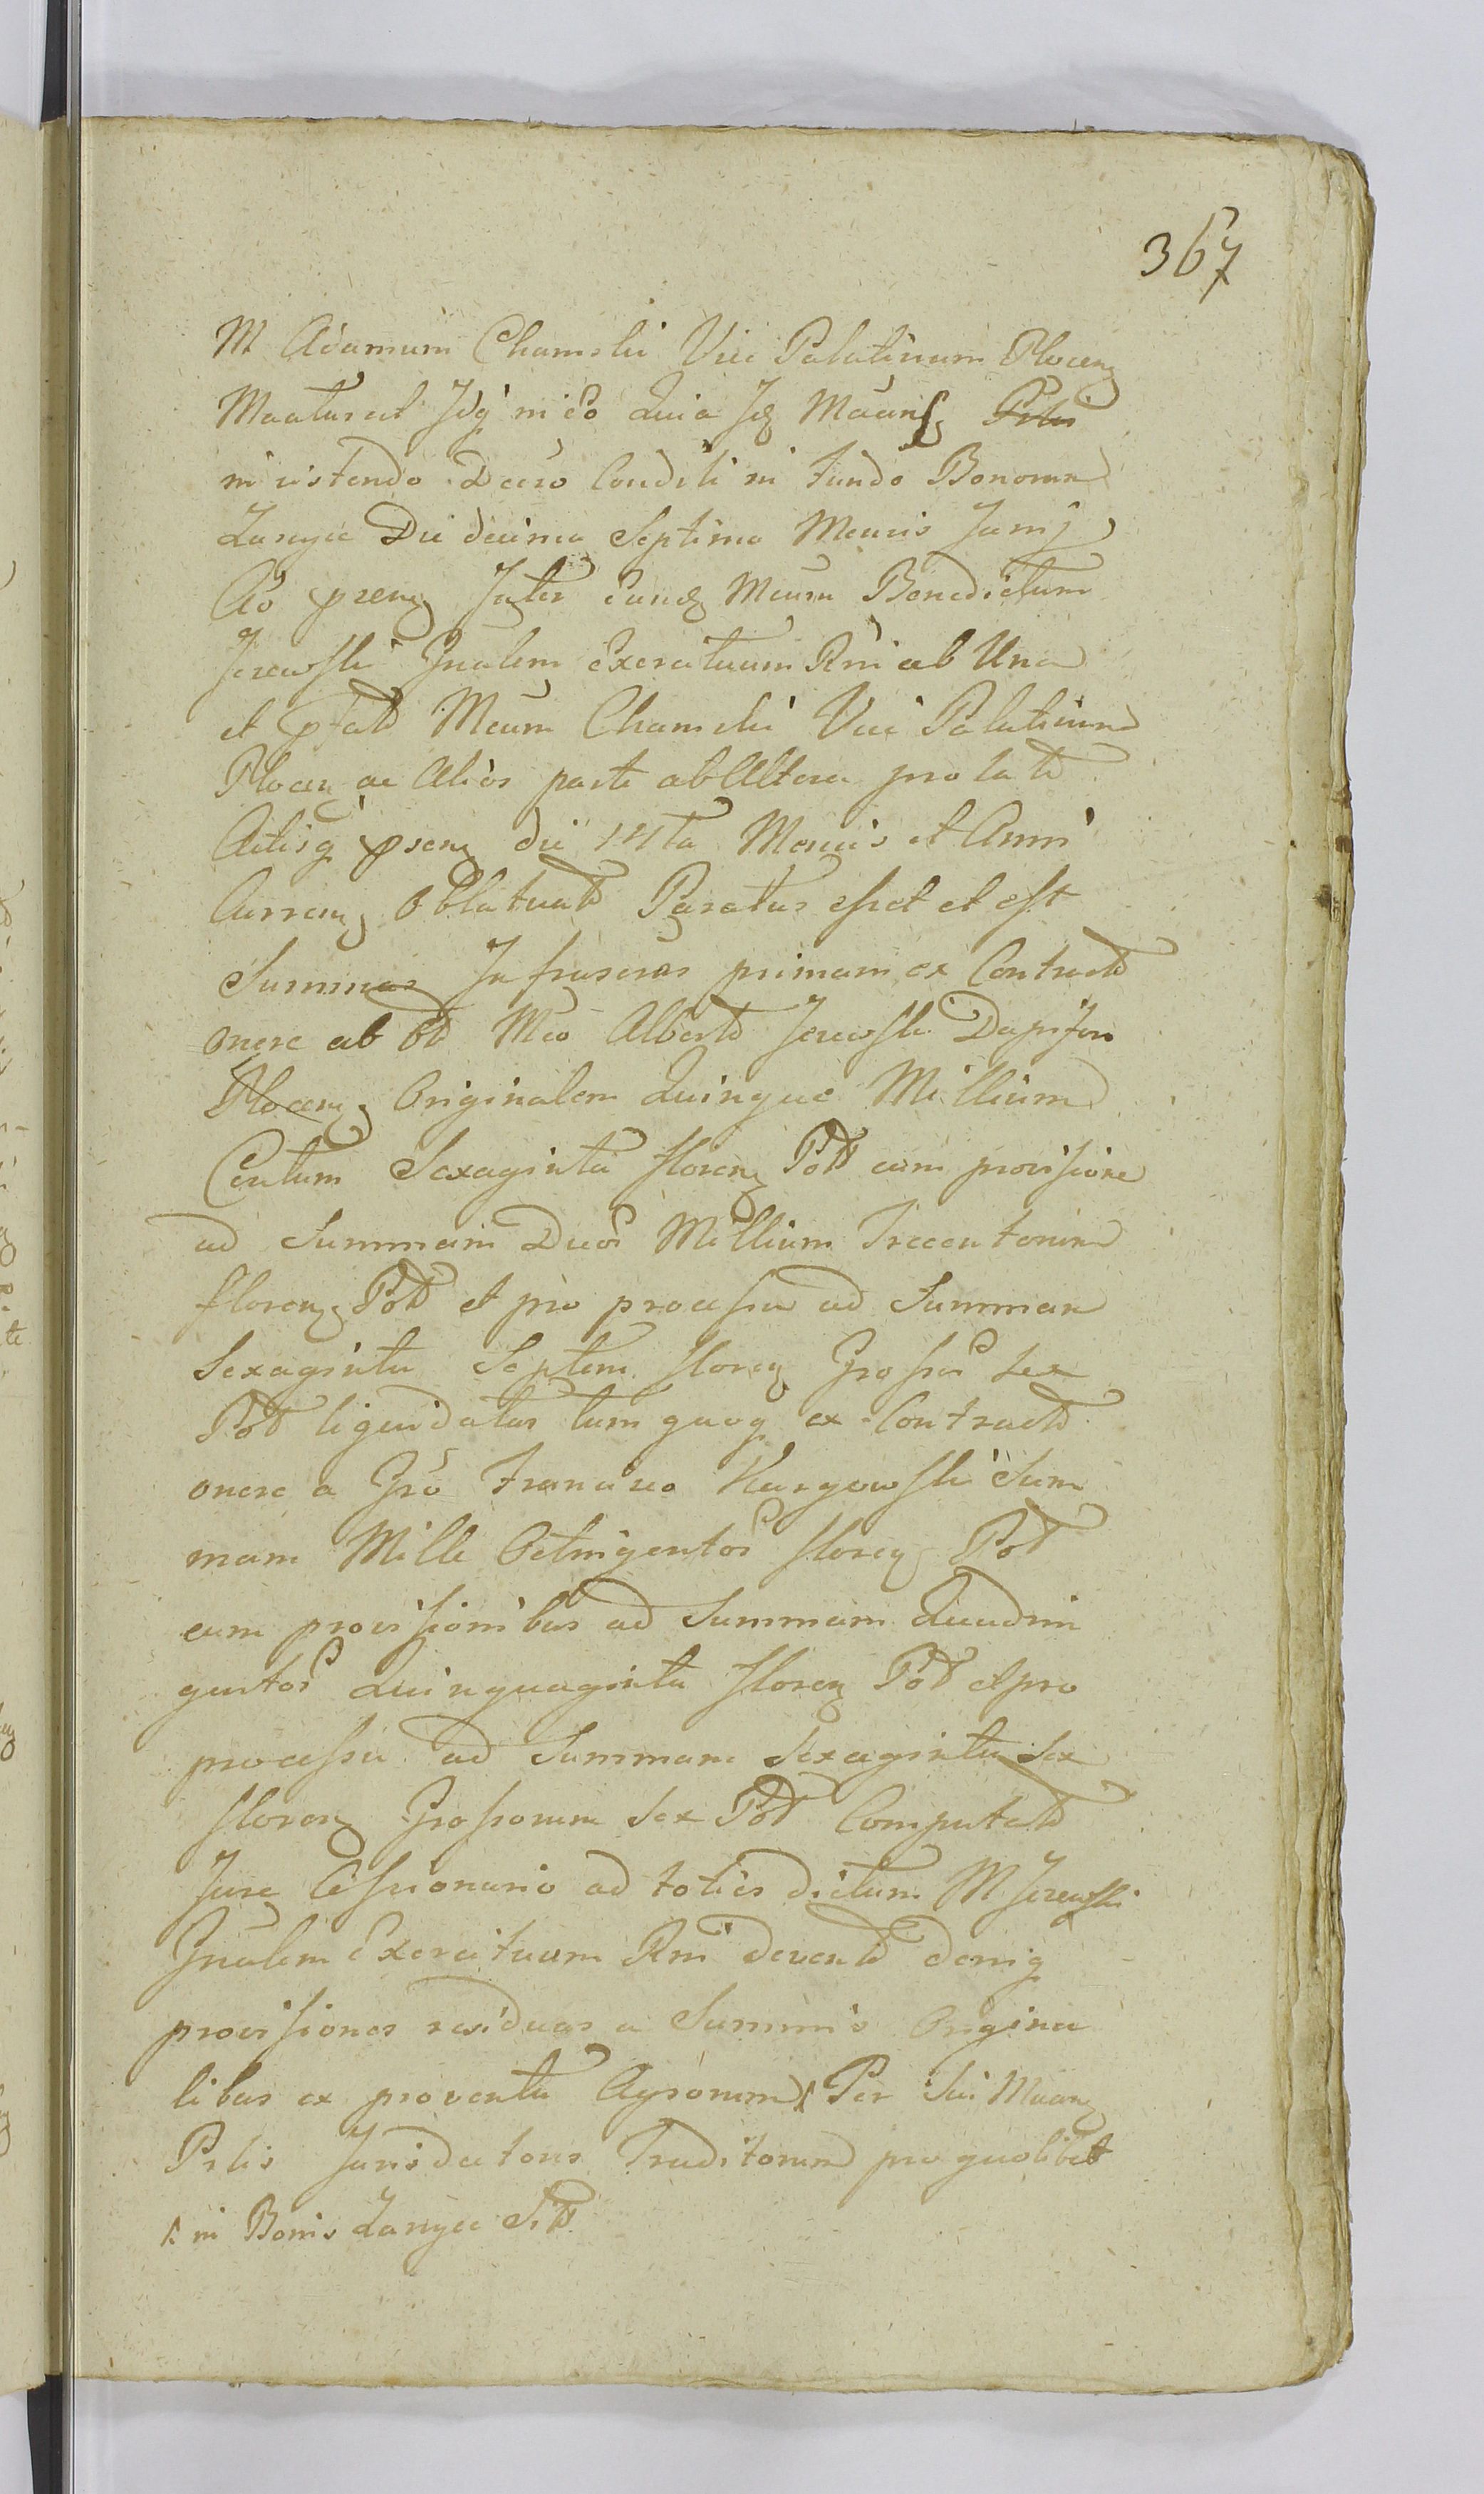 367
M Adamum Chamski Vice Palatinum Plocen
Maaturat Idq in eo Quia Id Maans Prlis
in vistendo Decro Conditi in Fundo Bonorum
Zarzyce Die decima Septima Mensis Junij
Ao prens Inter eund Mcum Benedictum
Jezewski Gnalem Exercituum Rni ab Una
et pfat Mcum Chamski Vice Palatinum
Plocen ac Alios parte ab Altera pro late
Actisq prens die 14ta Mensis et Anni
Curren Oblatuato Paratus esset et est
Summas Infrascras primam ex Contracto
onere ab od Mco Alberto Jezewski Dapifero
Plocen Originalem Quinque Millium
Centum Sexaginta floren Pol cum provisione
ad Summam Duor Millium Trecentorum
floren Pol et pro processu ad Summam
Sexaginta Septem floren Grossor Sex
Pol liquidatas tum quoq ex Contracto
onere a Gso Francisco Kargowski Sum
mam Mille Octingentor floren Pol
cum provisionibus ad Summam Quadrin
gentor Quinquaginta floren Pol et pro
processu ad Summam Sexaginta Sex
floren Grossorum Sex Pol Computato
Jure Cessionario ad toties dictum M Jezewski
Gnalem Exercituum Rni devento deniq
provisiones residuas a Summis Origina
libus ex proventu Agrorum Per Sui Maan
Prlis Jurisdatons Traditorum pro quolibet
in Bonis Zarzyce Sit